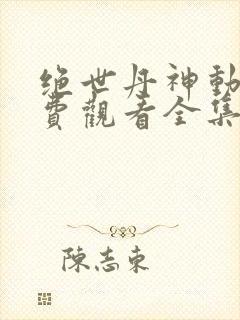 绝世丹神動
費觀看全集
陳志東